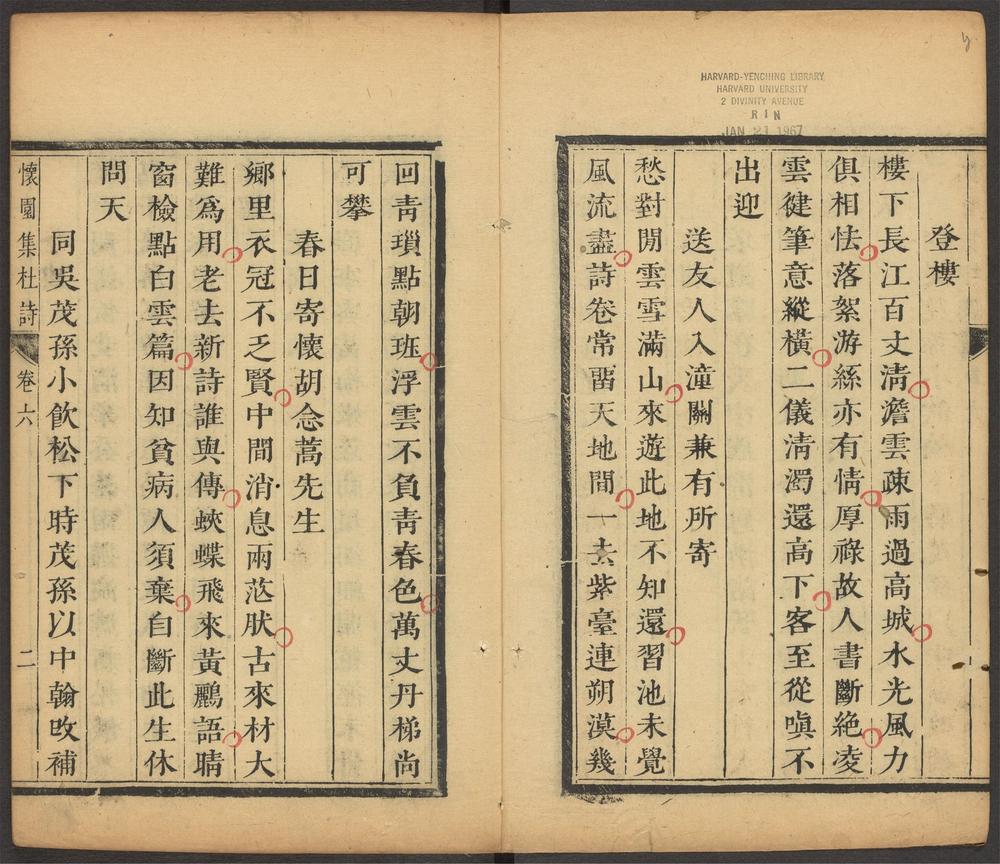 HARVARD-YENCHING LIBRARY
HARVARD UNIVERSITY
2 DIVINITY AVENUE
RIN
JAN 21 1967
登樓
樓下長江百丈淸澹雲疎雨過高城水光風力
俱相怯落絮游絲亦有情厚祿故人書斷絕凌
雲健筆意縱橫二儀淸濁還高下客至從嗔不
出迎
送友人入潼關兼有所寄
愁對閒雲雪滿山來遊此地不知還習池未覺
風流盡詩卷常畱天地間一去紫臺連朔漠幾
回靑瑣點朝班浮雲不負靑春色萬丈丹梯尙
可攀
春日寄懷胡念蒿先生
鄉里衣冠不乏賢中間消息兩茫肰古來材大
難爲用老去新詩誰與傳蛺蝶飛來黃鸝語晴
窗檢點白雲篇因知貧病人須棄自斷此生休
問天
同吳茂孫小飮松下時茂孫以中翰改補
懷園集杜詩 卷六 二